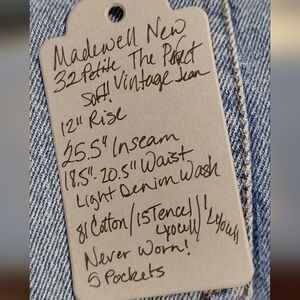 Madewell New
32 Petite The Perfect
soft! Vintage Jean
12" Rise
25.5" Inseam
18.5"-20.5" Waist
Light Denim Wash
81 Cotton/15 Tencel/
Lyocell
Never Worn!
5 Pockets